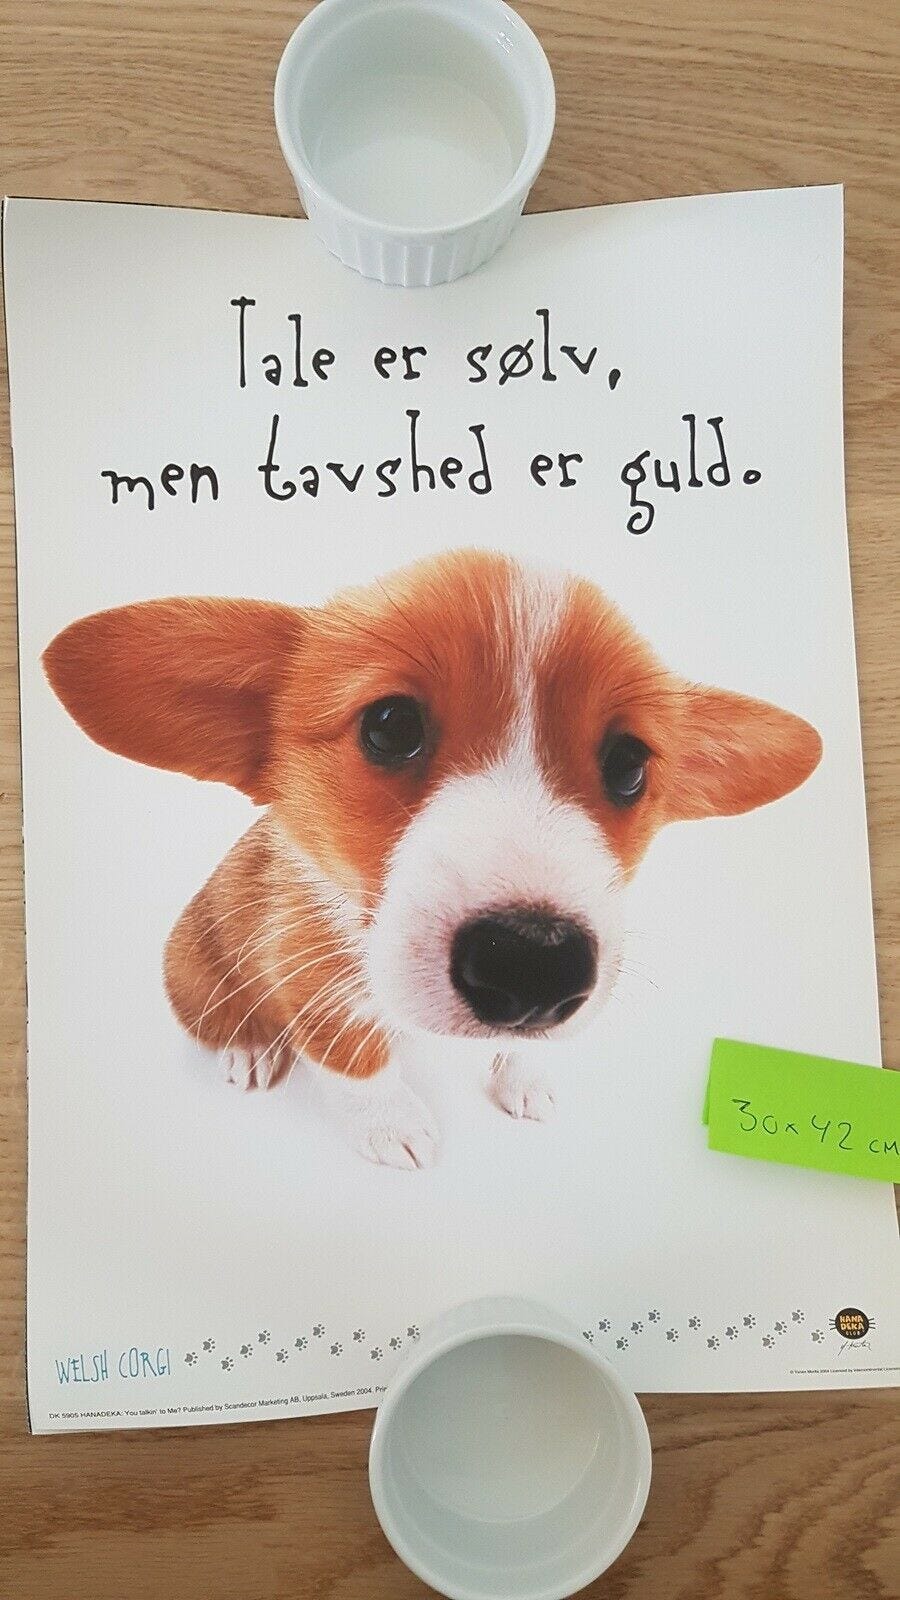 Tale er sølv,
men tavshed er guld.
30 x 42 CM
HANA
DEKA
CLUB
WELSH CORGI
DK 5905 HANADEKA: You talkin' to Me? Published by Scandecor Marketing AB, Uppsala, Sweden 2004.
© Yoneo Morita 2004 Licensed by Intercontinental